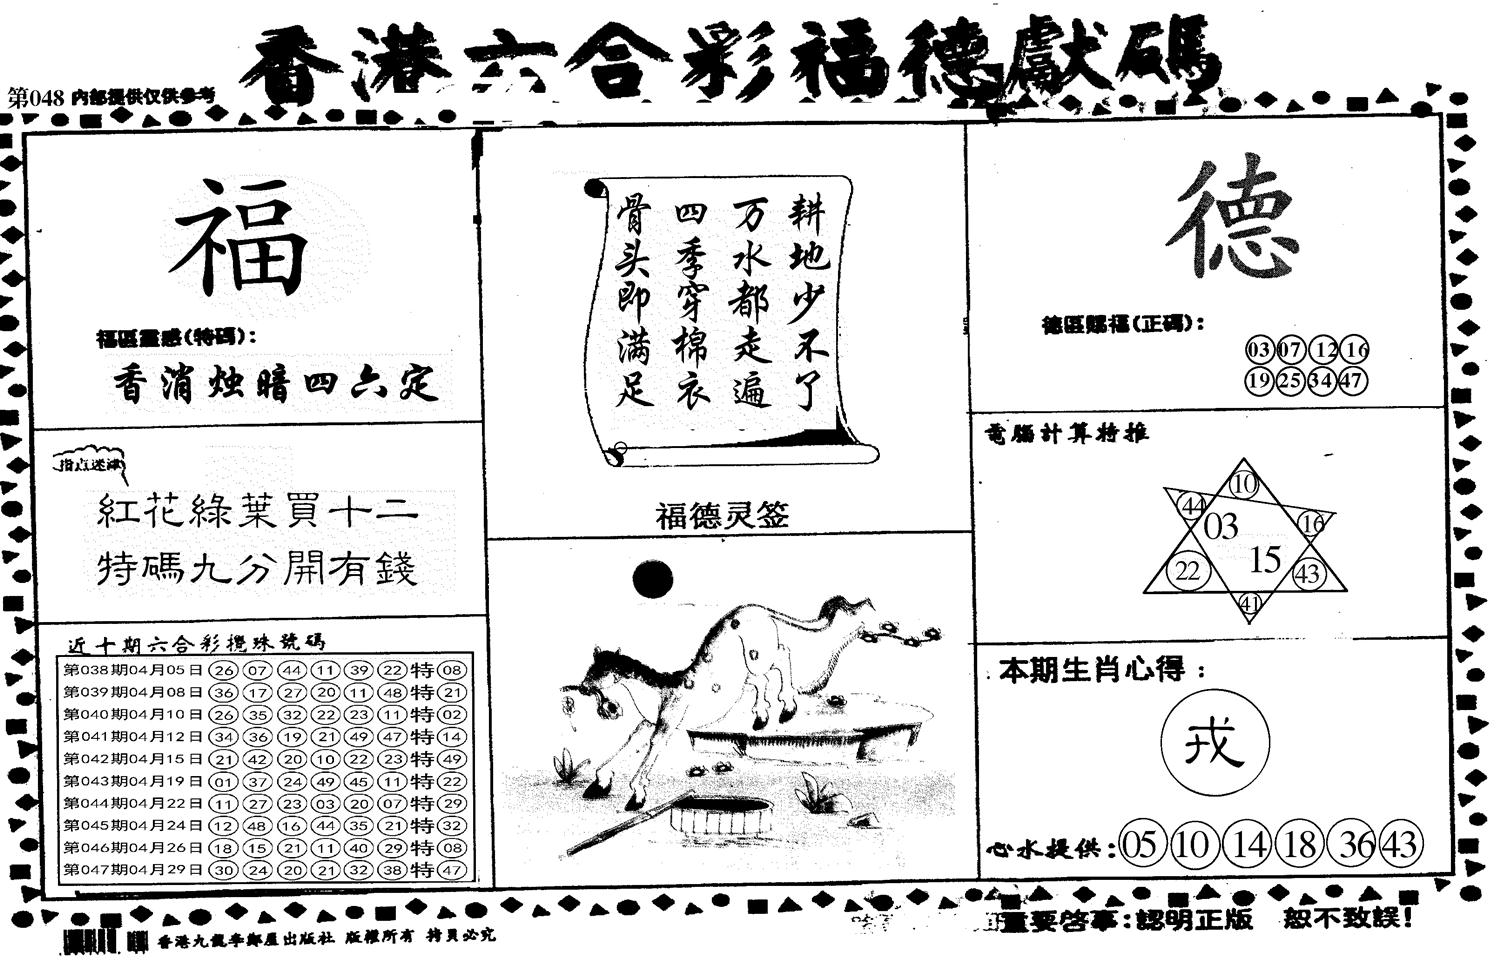 香港六合彩福德獻碼
第048 内部提供仅供参考
福
福區靈感(特碼):
香消烛暗四六定
指点迷津
紅花綠葉買十二
特碼九分開有錢
近十期六合彩攪珠號碼
第038期04月05日 26 07 44 11 39 22 特 08
第039期04月08日 36 17 27 20 11 48 特 21
第040期04月10日 26 35 32 22 23 11 特 02
第041期04月12日 34 36 19 21 49 47 特 14
第042期04月15日 21 42 20 10 22 23 特 49
第043期04月19日 01 37 24 49 45 11 特 22
第044期04月22日 11 27 23 03 20 07 特 29
第045期04月24日 12 48 16 44 35 21 特 32
第046期04月26日 18 15 21 11 40 29 特 08
第047期04月29日 30 24 20 21 32 38 特 47
耕地少不了
万水都走遍
四季穿棉衣
骨头即满足
福德灵签
德
德區賜福(正碼):
03 07 12 16
19 25 34 47
電腦計算特推
10
44 03 16
15
22 43
41
本期生肖心得:
戎
心水提供: 05 10 14 18 36 43
香港九龍李鄭屋出版社 版權所有 拷貝必究
重要啓事:認明正版 恕不致誤!